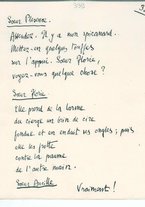 Sœur Florence
Attendez. Il y a mon picament.
Mettez-en quelques touffes
sur l'appui. Sœur Florie,
voyez-vous quelque chose ?
Sœur Florie
Elle prend de la larme
du cierge un brin de cire
fondue et en enduit ses ongles ; puis
elle les frotte
contre la paume
de l'autre main.
Sœur
Vraiment !